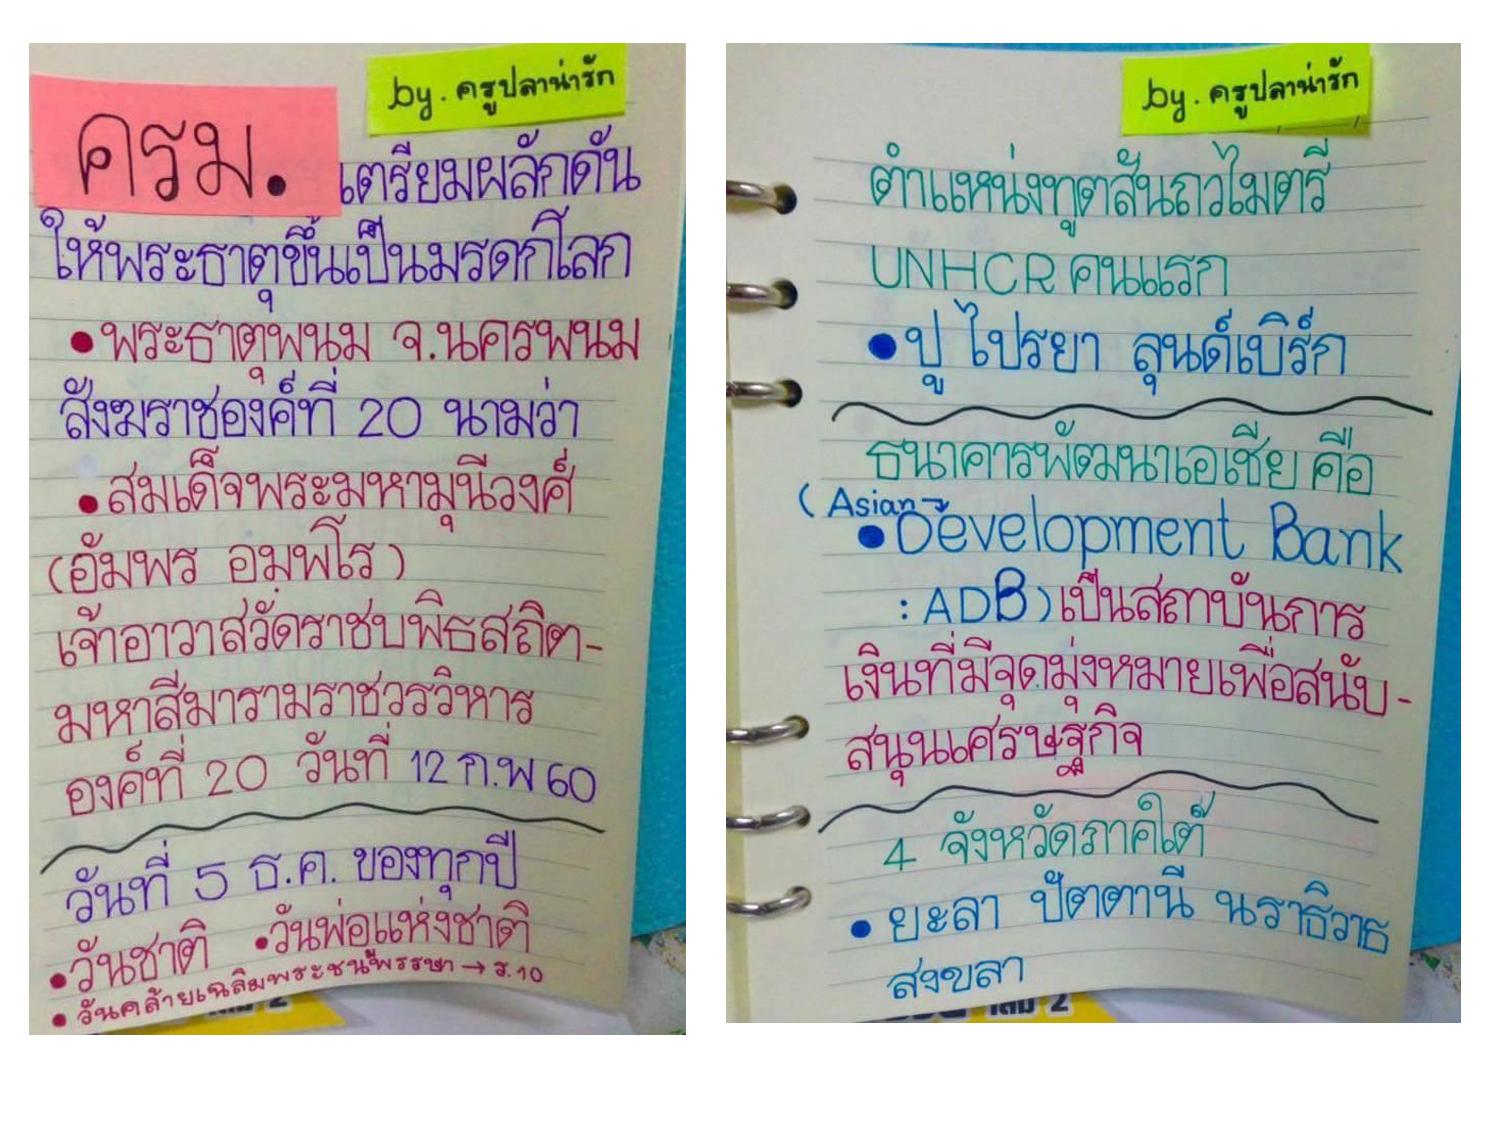 by. ครูปลาน่ารัก
ครม. เตรียมผลักดัน
ให้พระธาตุขึ้นเป็นมรดกโลก
•พระธาตุพนม จ.นครพนม
สังฆราชองค์ที่ 20 นามว่า
•สมเด็จพระมหามุนีวงศ์
(อัมพร อมฺพโร)
เจ้าอาวาสวัดราชบพิธสถิต-
มหาสีมารามราชวรวิหาร
องค์ที่ 20 วันที่ 12 ก.พ 60
วันที่ 5 ธ.ค. ของทุกปี
•วันชาติ •วันพ่อแห่งชาติ
•วันคล้ายเฉลิมพระชนพรรษา → ร.10
เล่ม 2
by. ครูปลาน่ารัก
ตำแหน่งทูตสันถวไมตรี
UNHCR คนแรก
•ปู ไปรยา ลุนด์เบิร์ก
ธนาคารพัฒนาเอเชีย คือ
(Asian
•Development Bank
: ADB) เป็นสถาบันการ
เงินที่มีจุดมุ่งหมายเพื่อสนับ-
สนุนเศรษฐกิจ
4 จังหวัดภาคใต้
•ยะลา ปัตตานี นราธิวาธ
สงขลา
เล่ม 2